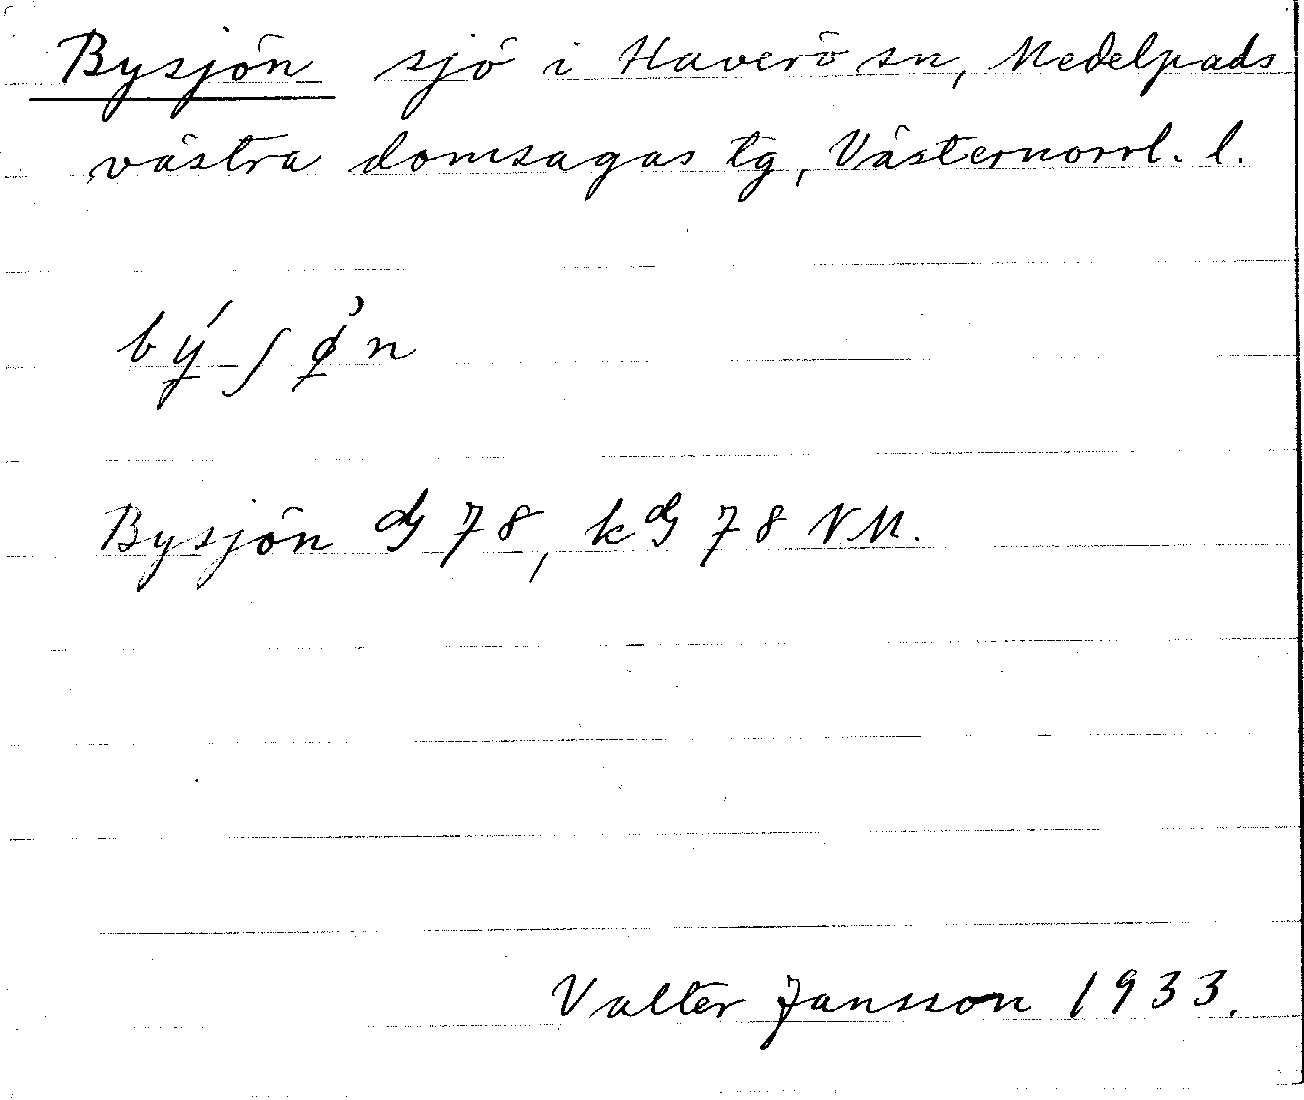 Bysjön sjö i Haverö sn, Medelpads
västra domsagas tg, Västernorrl. l.
bý ʃ ø̀n
Bysjön 78, k 78 NM.
Valter Jansson 1933.